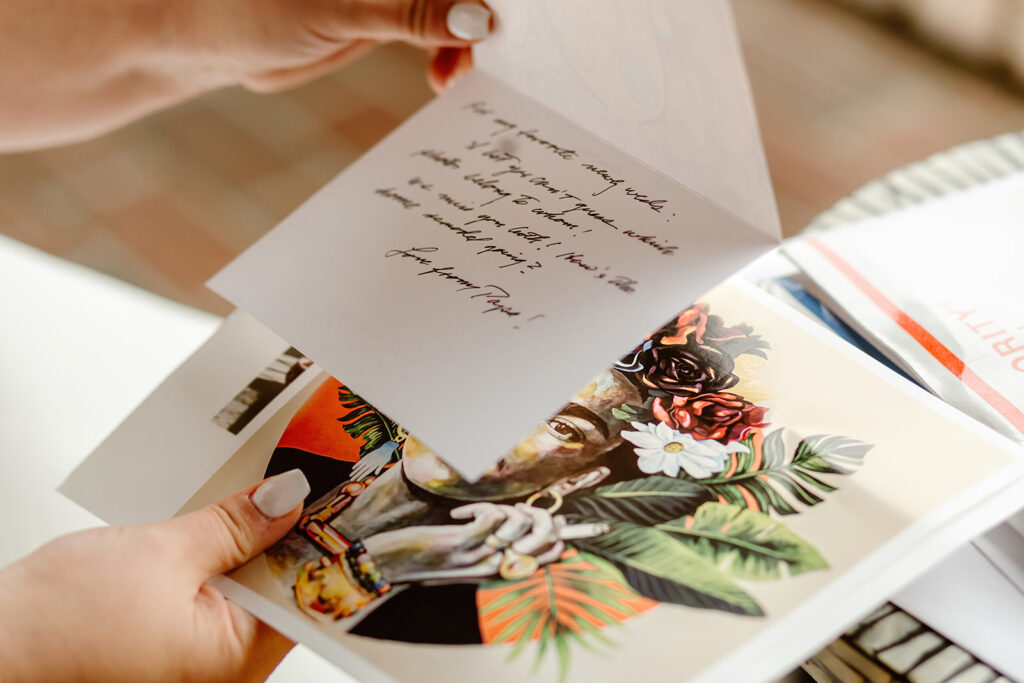 For my favorite newly weds!
I bet you can't guess which
photo belong to whom!
We miss you both! How's the
home remodel going?
Love from Papa!
ORITY